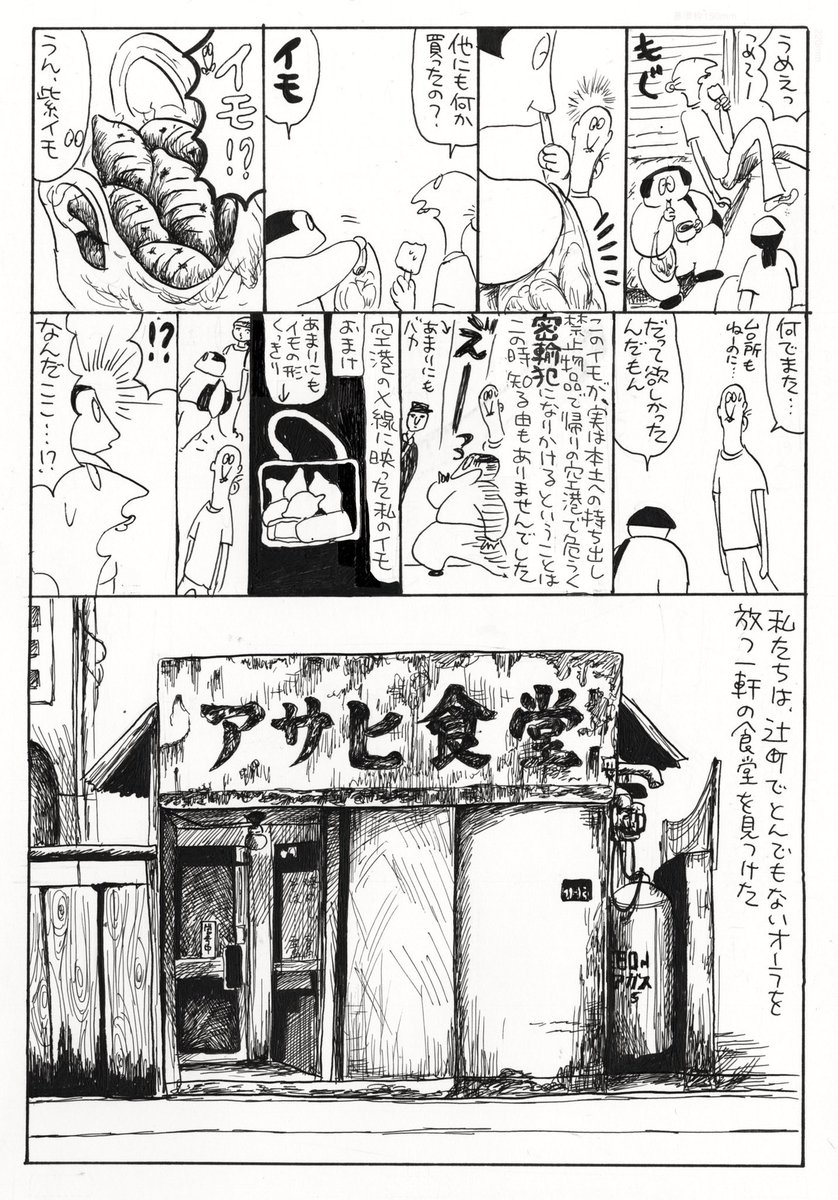 うめえっ
うめてー
もじ
他にも何か
買ったの?
イモ
イモ!?
うん、紫イモ
何でまた…
台所も
ねーのに…
だって欲しかった
んだもん
このイモが、実は本土への持ち出し
禁止物品で帰りの空港で危うく
密輸犯になりかけるということは
この時知る由もありませんでした
えーーっ
あまりにも
バカ
空港のX線に映った私のイモ
おまけ
あまりにも
イモの形
くっきり
!?
なんだここ…!?
私たちは、辻町でとんでもないオーラを
放つ一軒の食堂を見つけた
アサヒ食堂